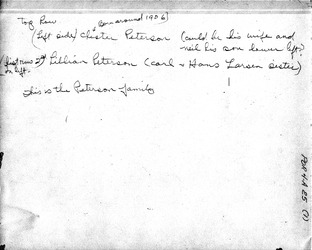 Top Row (born around 1906)
(left side) Chester Peterson (could be his wife and
neil his son lower left?)
(first row 2nd on left. Lillian Peterson (carl & Hans Larsen sister)
This is the Peterson family